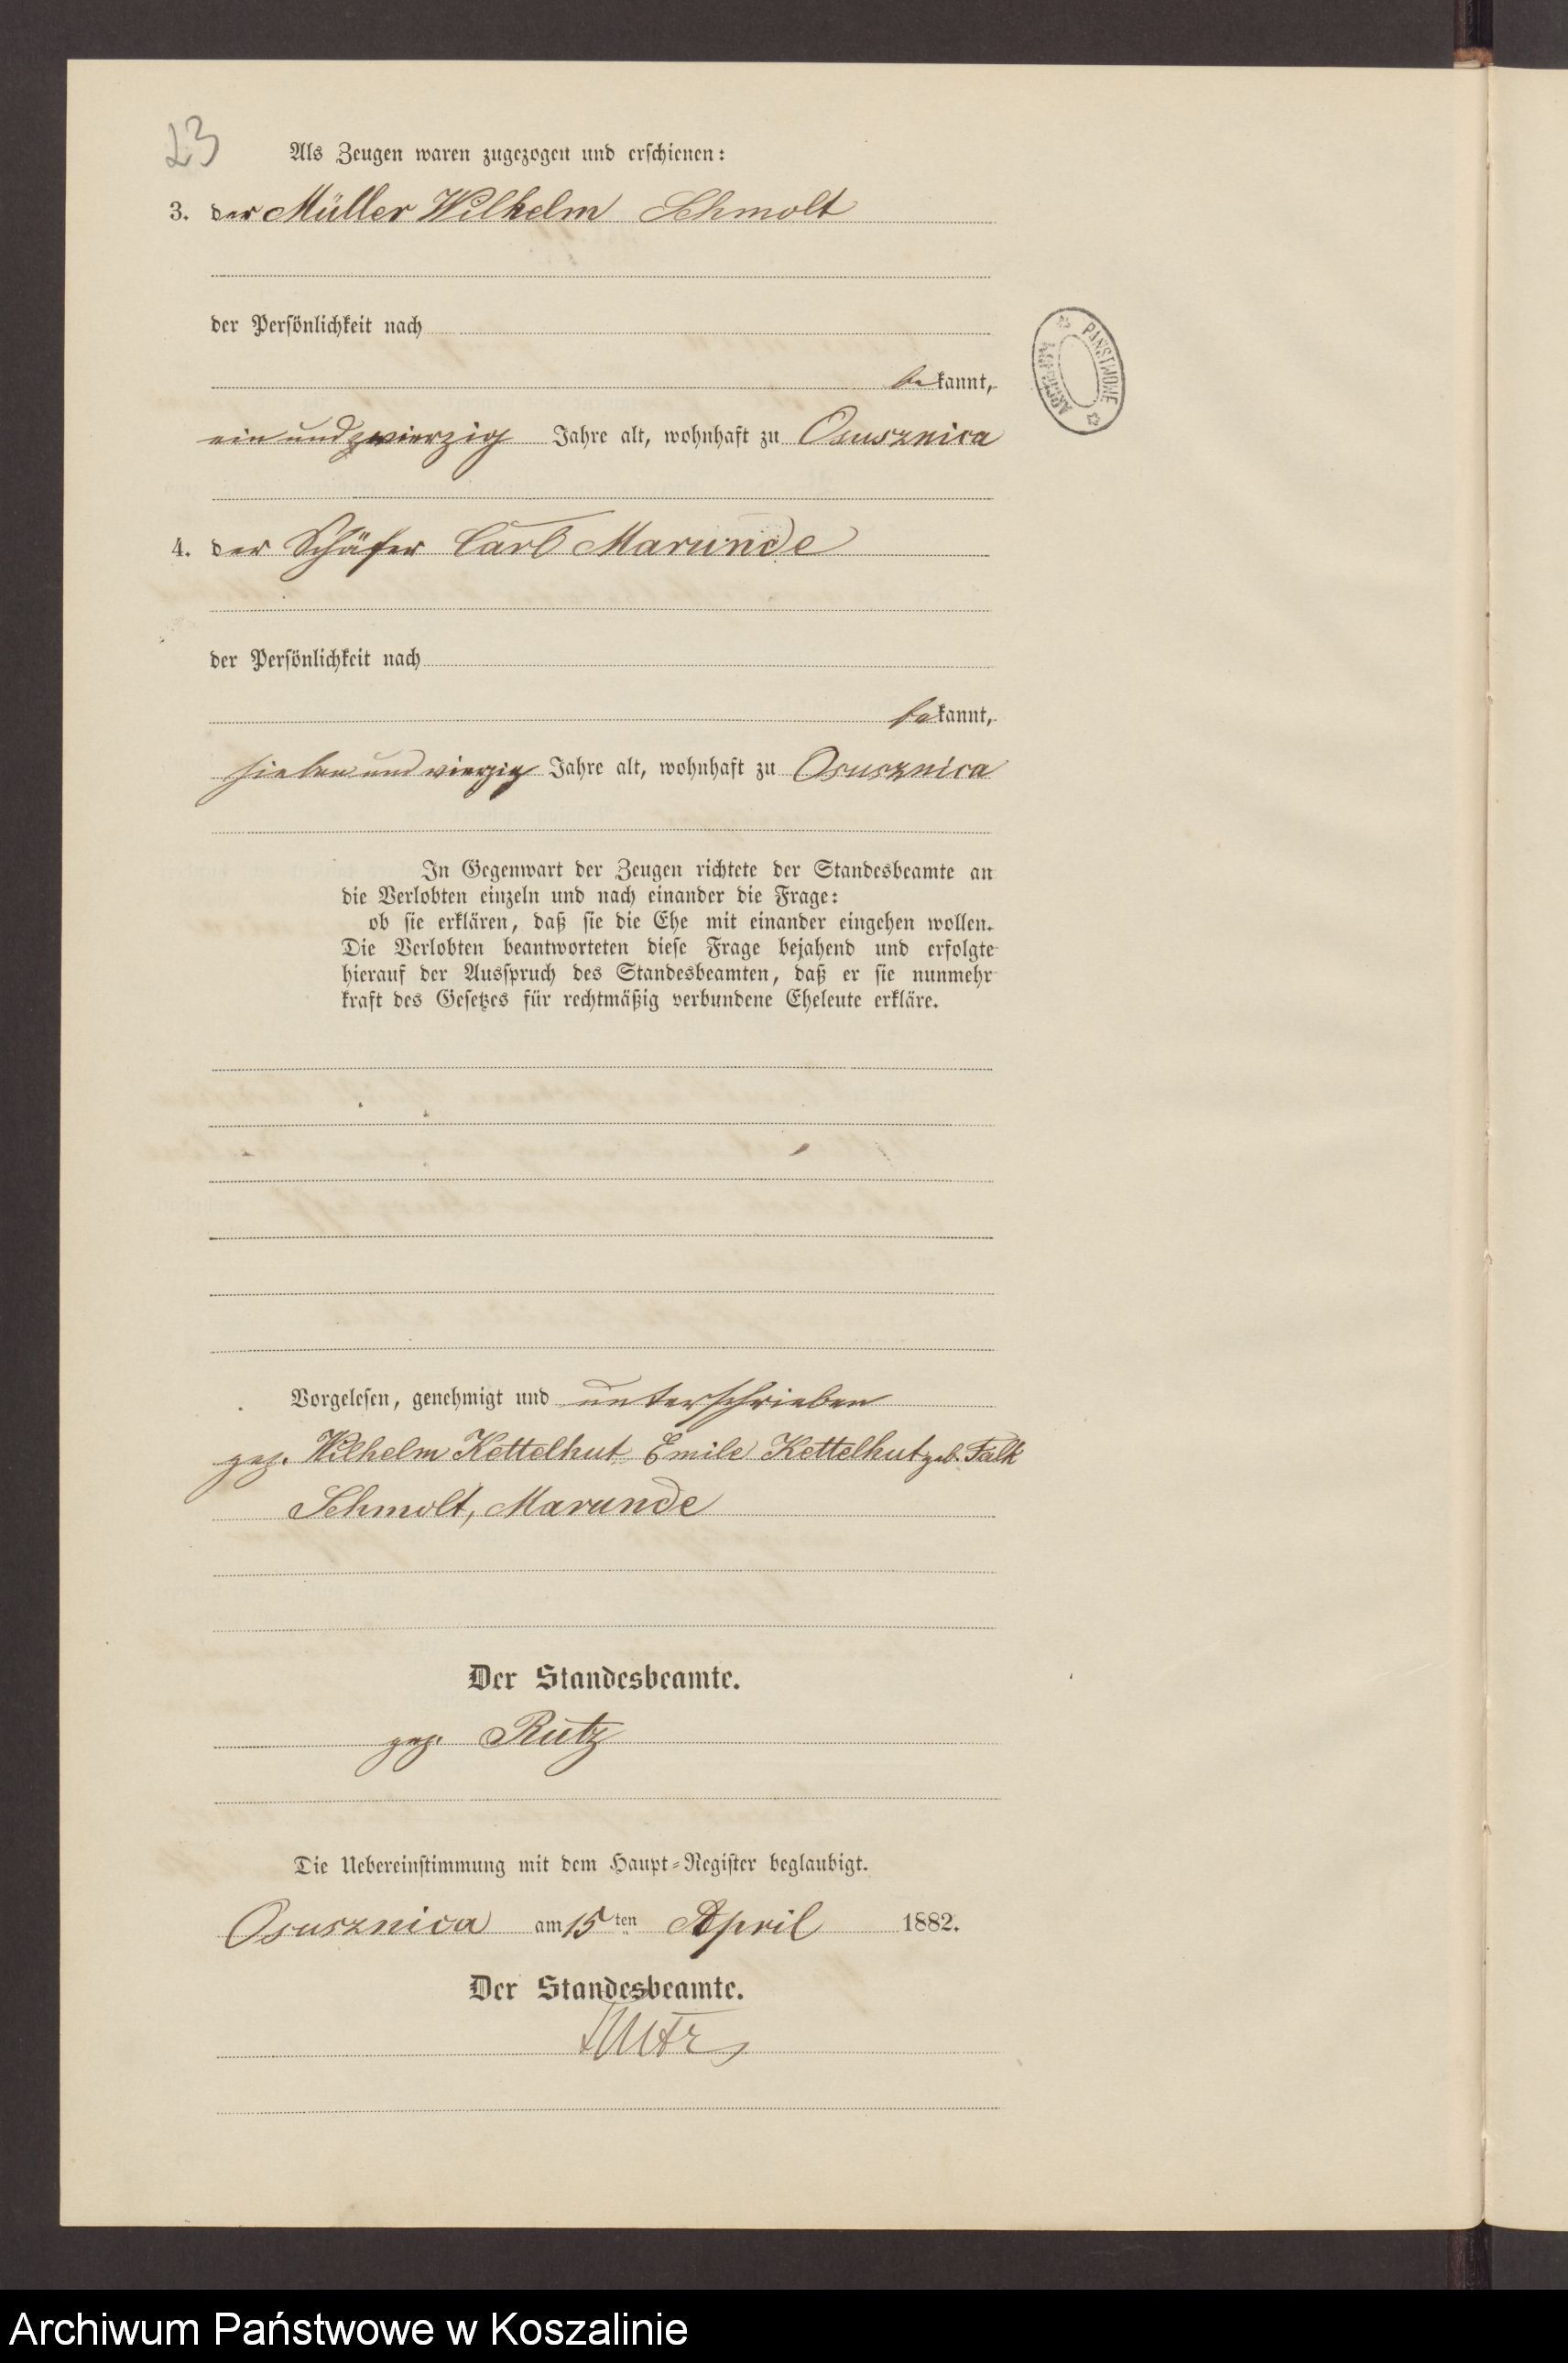 23
Als Zeugen waren zugezogen und erschienen:
3. der Müller Wilhelm Schmolt
der Persönlichkeit nach
bekannt,
ein und vierzig Jahre alt, wohnhaft zu Osusznica
4. der Schäfer Carl Marunde
der Persönlichkeit nach
bekannt,
sieben und vierzig Jahre alt, wohnhaft zu Osusznica
In Gegenwart der Zeugen richtete der Standesbeamte an
die Verlobten einzeln und nach einander die Frage:
ob sie erklären, daß sie die Ehe mit einander eingehen wollen.
Die Verlobten beantworteten diese Frage bejahend und erfolgte
hierauf der Ausspruch des Standesbeamten, daß er sie nunmehr
kraft des Gesetzes für rechtmäßig verbundene Eheleute erkläre.
Vorgelesen, genehmigt und unterschrieben
gez. Wilhelm Kettelhut Emile Kettelhut geb. Falk
Schmolt, Marunde
Der Standesbeamte.
gez. Rutz
Die Uebereinstimmung mit dem Haupt-Register beglaubigt.
Osusznica am 15ten April 1882.
Der Standesbeamte.
Rutz
ARCHIWUM PAŃSTWOWE
Archiwum Państwowe w Koszalinie